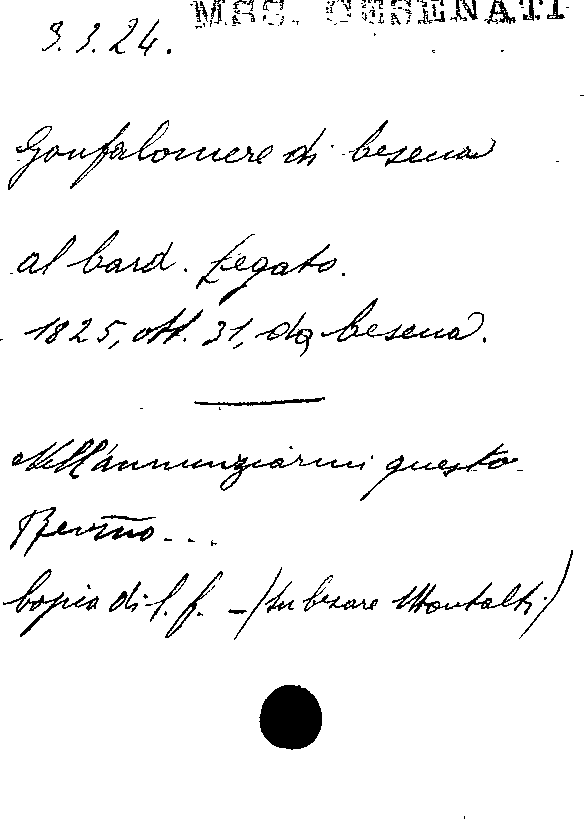 MSS. CESENATI
3.3.24.
Gonfaloniere di Cesena
al Card. Legato.
1825, ott. 31, da Cesena.
Nell'annunziarmi questo
Revmo...
Copia di l. f. - (Su Cesare Montalti)